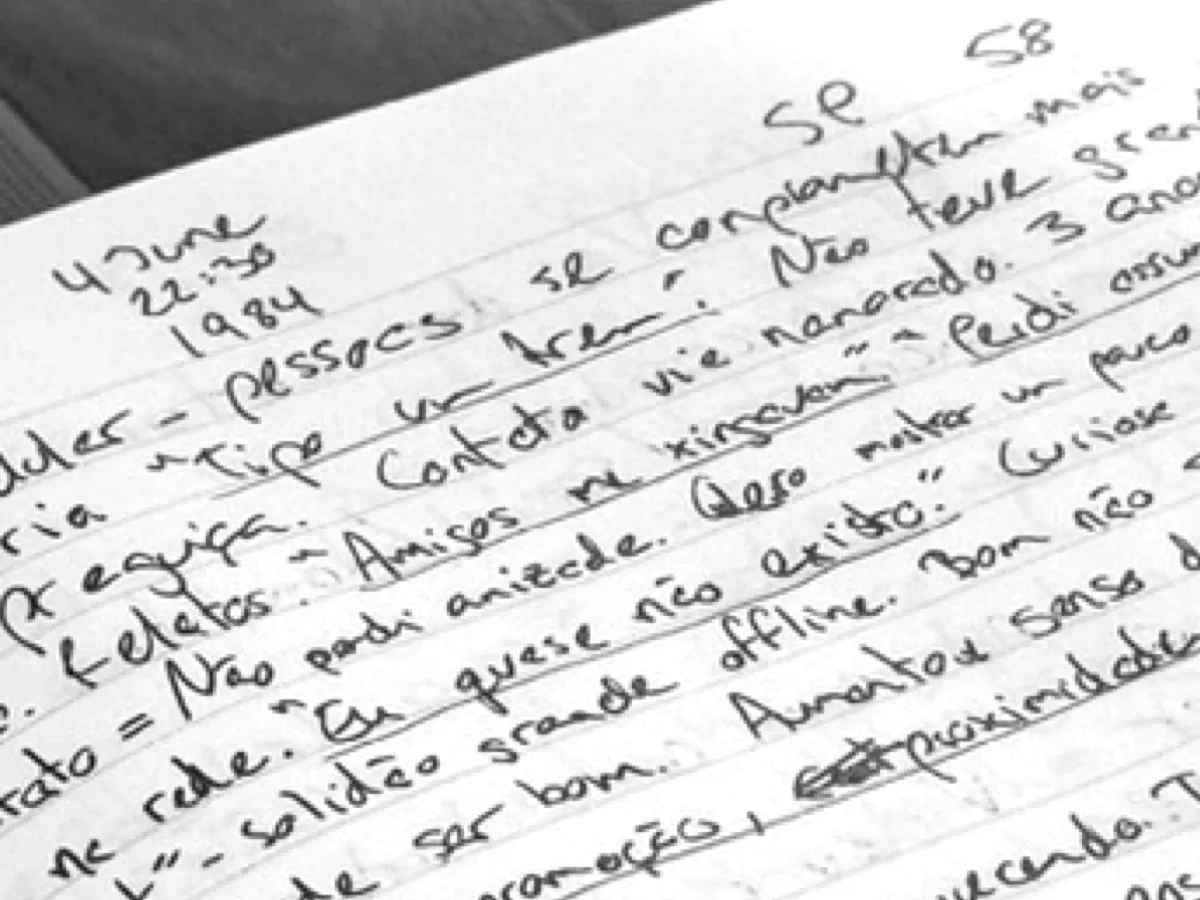 58
SP
4 June
22:30
1984
- pessoas se mais
ria "Tipo um trem". Não teve
Preguiça. Contato via namorado. 3
Relatos: "Amigos me xingavam" "Perdi
= Não perdi amizade. Quero mostrar um pouco
na rede. "Eu quase não existo." Curiose
- solidão grande offline. Bom não
ser bom. Aumentou senso
promoção, proximidade